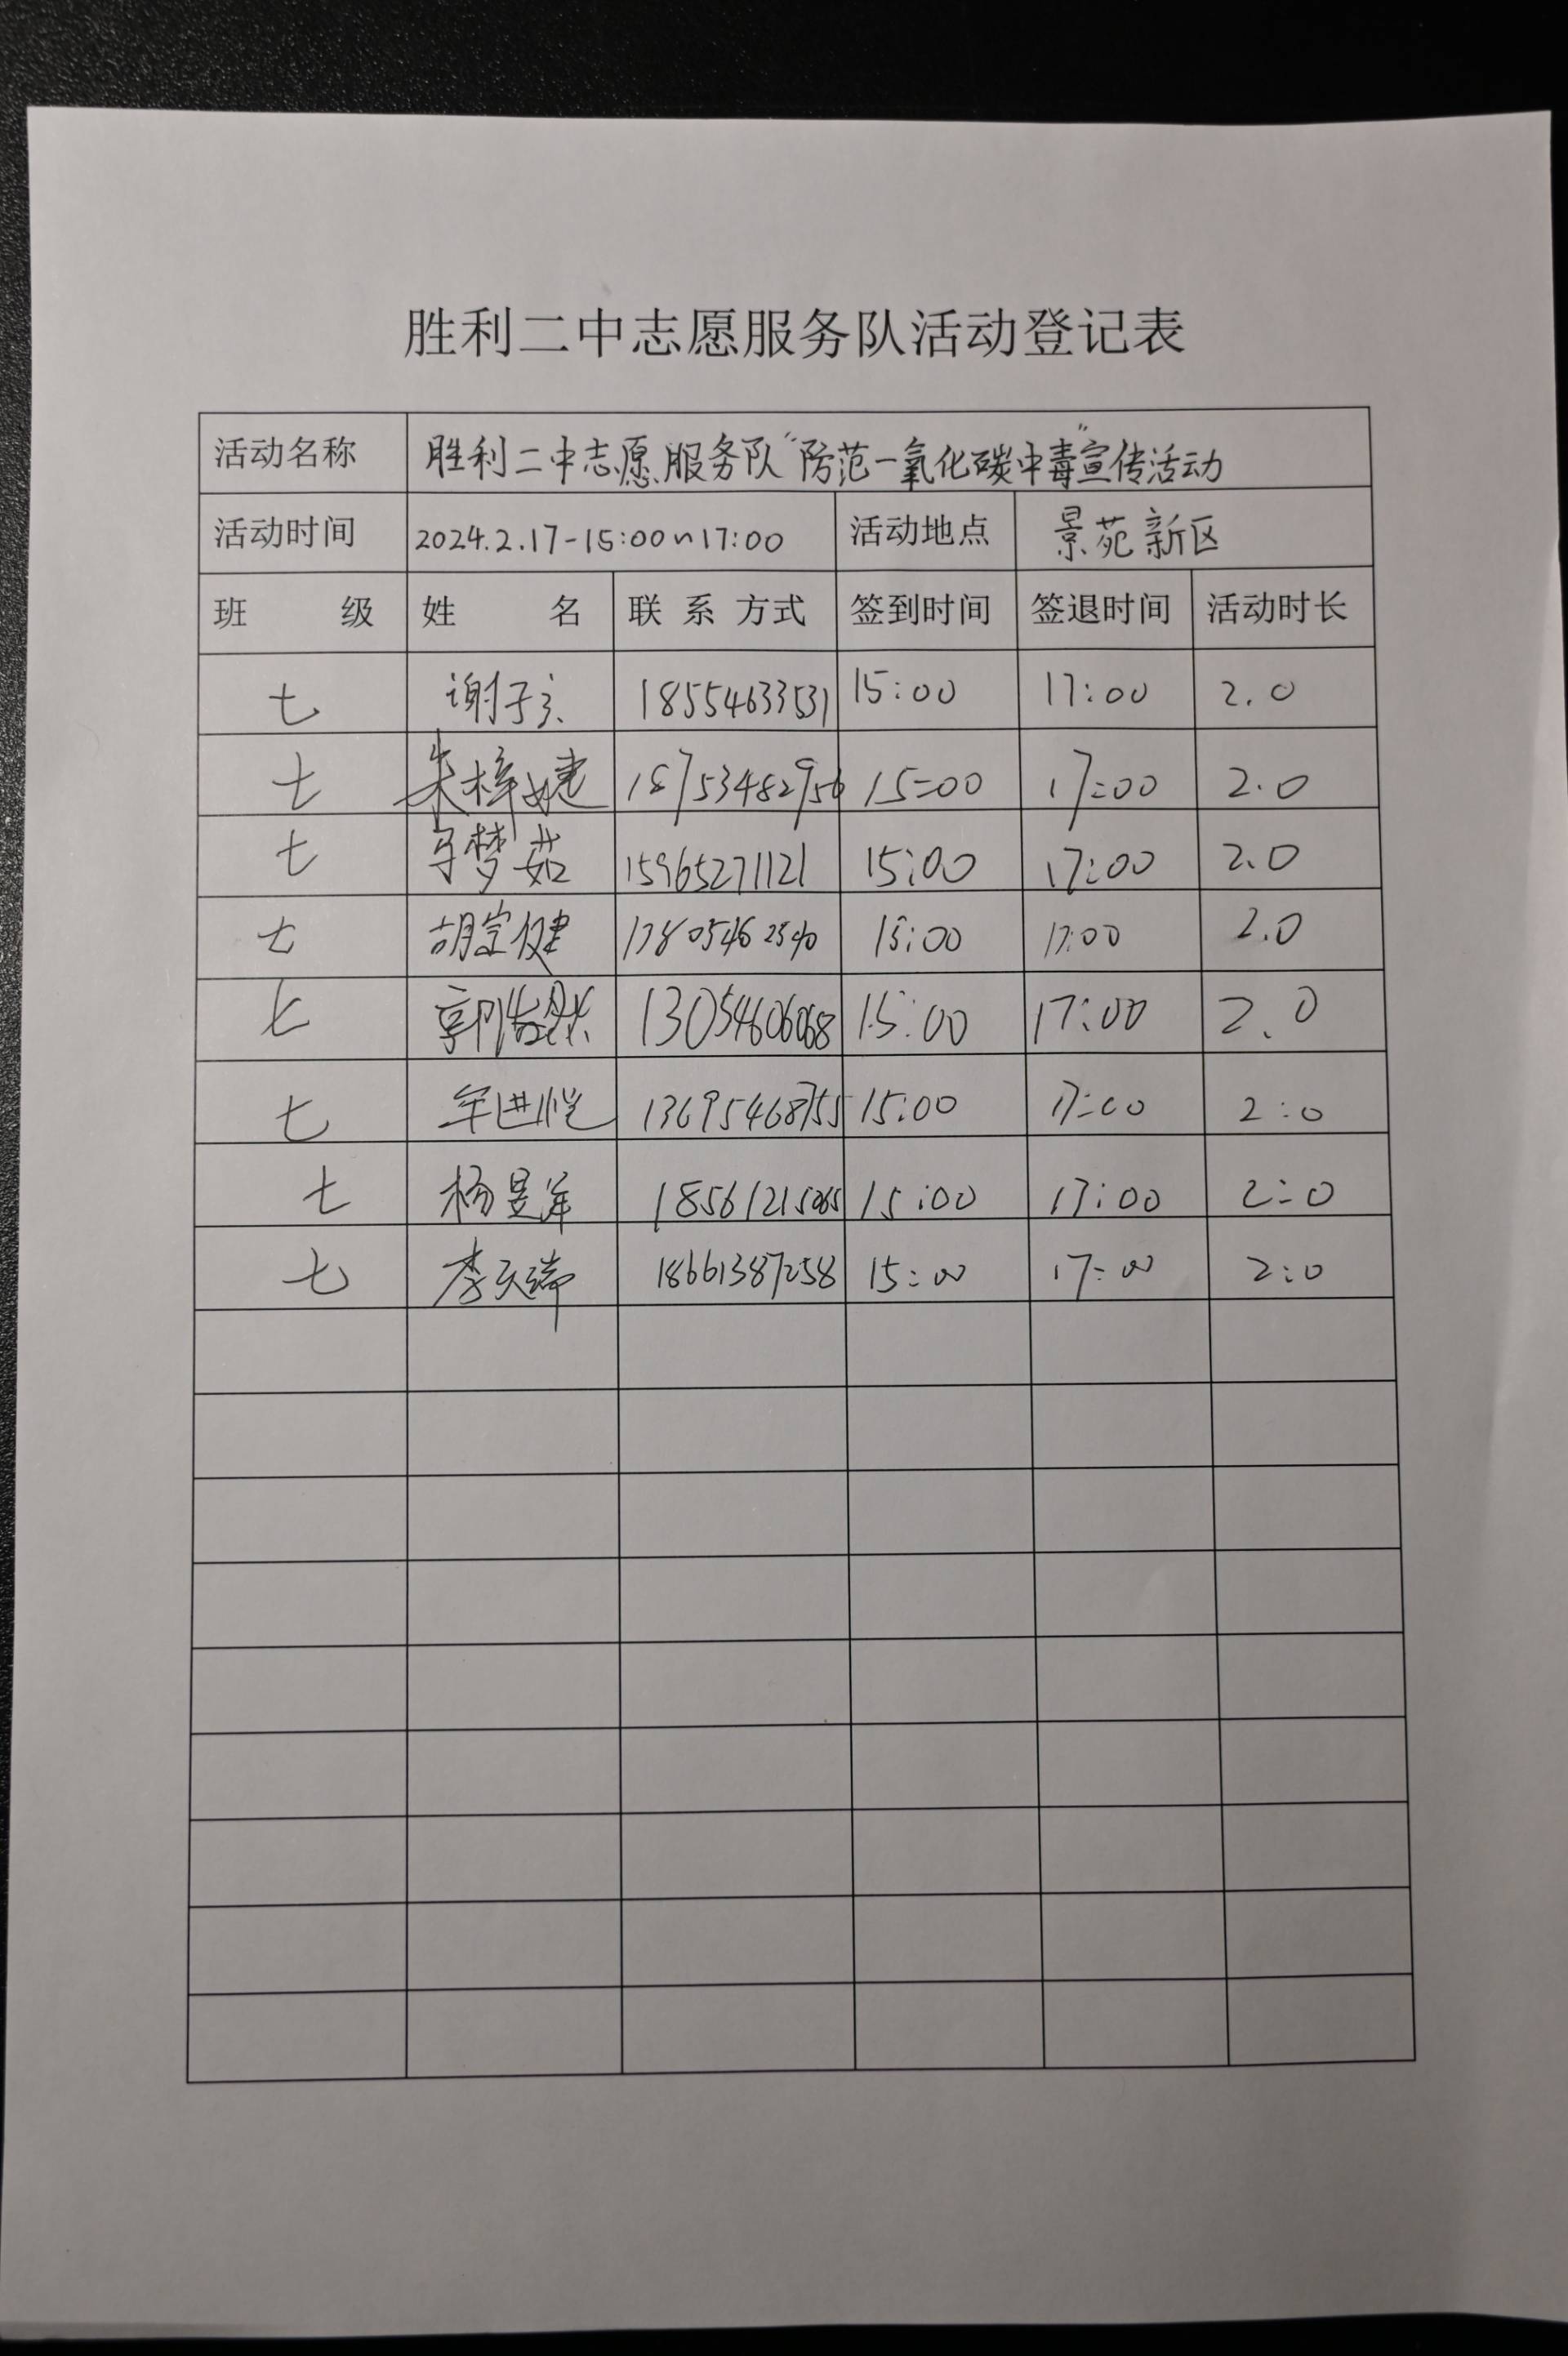 胜利二中志愿服务队活动登记表
活动名称 胜利二中志愿服务队"防范一氧化碳中毒"宣传活动
活动时间 2024.2.17-15:00~17:00 活动地点 景苑新区
班 级 姓 名 联系方式 签到时间 签退时间 活动时长
七 谢子 18554633531 15:00 17:00 2.0
七 朱梓婕 18753482956 15:00 17:00 2.0
七 梦茹 15965271121 15:00 17:00 2.0
七 胡宗健 15:00 17:00 2.0
七 郭浩然 13054606068 15:00 17:00 2.0
七 牟进恺 13695468755 15:00 17:00 2:0
七 杨昱 18561215065 15:00 17:00 2:0
七 李天瑞 18661387258 15:00 17:00 2:0